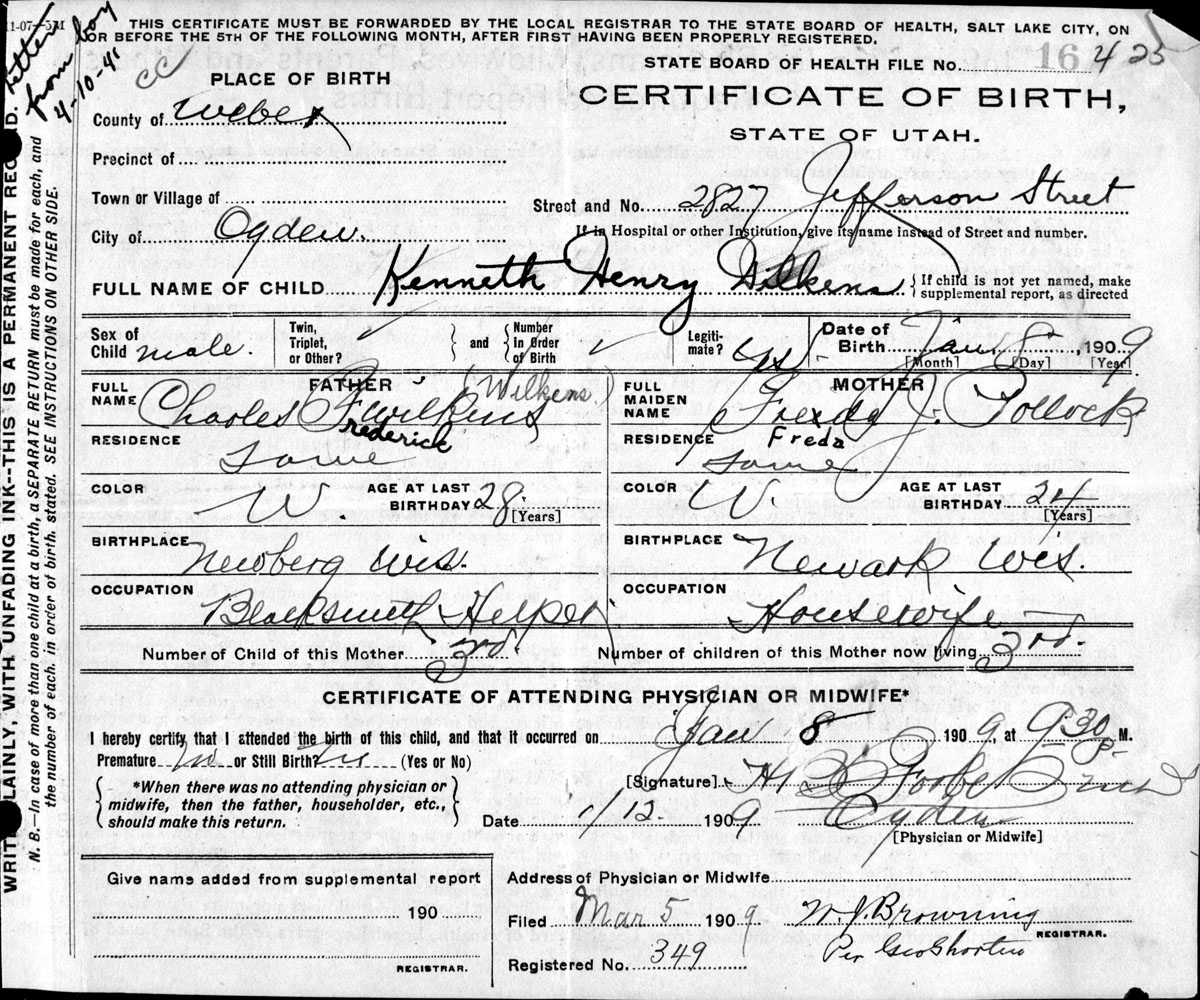 11-07-5M
THIS CERTIFICATE MUST BE FORWARDED BY THE LOCAL REGISTRAR TO THE STATE BOARD OF HEALTH, SALT LAKE CITY, ON
OR BEFORE THE 5TH OF THE FOLLOWING MONTH, AFTER FIRST HAVING BEEN PROPERLY REGISTERED.
letter
from boy
4-10-41
cc
PLACE OF BIRTH
STATE BOARD OF HEALTH FILE No. 16 425
CERTIFICATE OF BIRTH,
STATE OF UTAH.
County of Weber
Precinct of
Town or Village of
Street and No. 2827 Jefferson Street
City of Ogden.
If in Hospital or other Institution, give its name instead of Street and number.
FULL NAME OF CHILD Kenneth Henry Wilkens
{ If child is not yet named, make supplemental report, as directed
Sex of Child male.
Twin, Triplet, or Other? } and { Number In Order of Birth
Legitimate? Yes
Date of Birth Jan 8 1909
[Month] [Day] [Year]
FATHER
FULL NAME Charles F. Wilkins (Wilkens)
Frederick
RESIDENCE Same
COLOR W. AGE AT LAST BIRTHDAY 28 [Years]
BIRTHPLACE Newberg Wis.
OCCUPATION Blacksmith Helper
MOTHER
FULL MAIDEN NAME Freda J. Pollock
Freda
RESIDENCE Same
COLOR W. AGE AT LAST BIRTHDAY 24 [Years]
BIRTHPLACE Newark Wis.
OCCUPATION Housewife
Number of Child of this Mother 3rd.
Number of children of this Mother now living 3rd
CERTIFICATE OF ATTENDING PHYSICIAN OR MIDWIFE*
I hereby certify that I attended the birth of this child, and that it occurred on Jan 8 1909 at 9:30 P M.
Premature No or Still Birth? No (Yes or No)
{ *When there was no attending physician or midwife, then the father, householder, etc., should make this return. }
[Signature] H. B. Forbes
Date 1/12. 1909 Ogden
[Physician or Midwife]
Give name added from supplemental report
190
REGISTRAR.
Address of Physician or Midwife
Filed Mar 5 1909 W. J. Browning
REGISTRAR.
Registered No. 349 Per Geo Shorten
WRITE PLAINLY, WITH UNFADING INK--THIS IS A PERMANENT RECORD.
N. B.—In case of more than one child at a birth, a SEPARATE RETURN must be made for each, and
the number of each, in order of birth, stated. SEE INSTRUCTIONS ON OTHER SIDE.